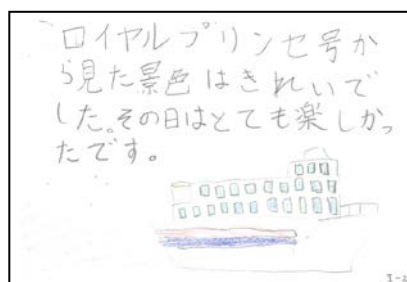 ロイヤルプリンセ号か
ら見た景色はきれいで
した。その日はとても楽しかっ
たです。